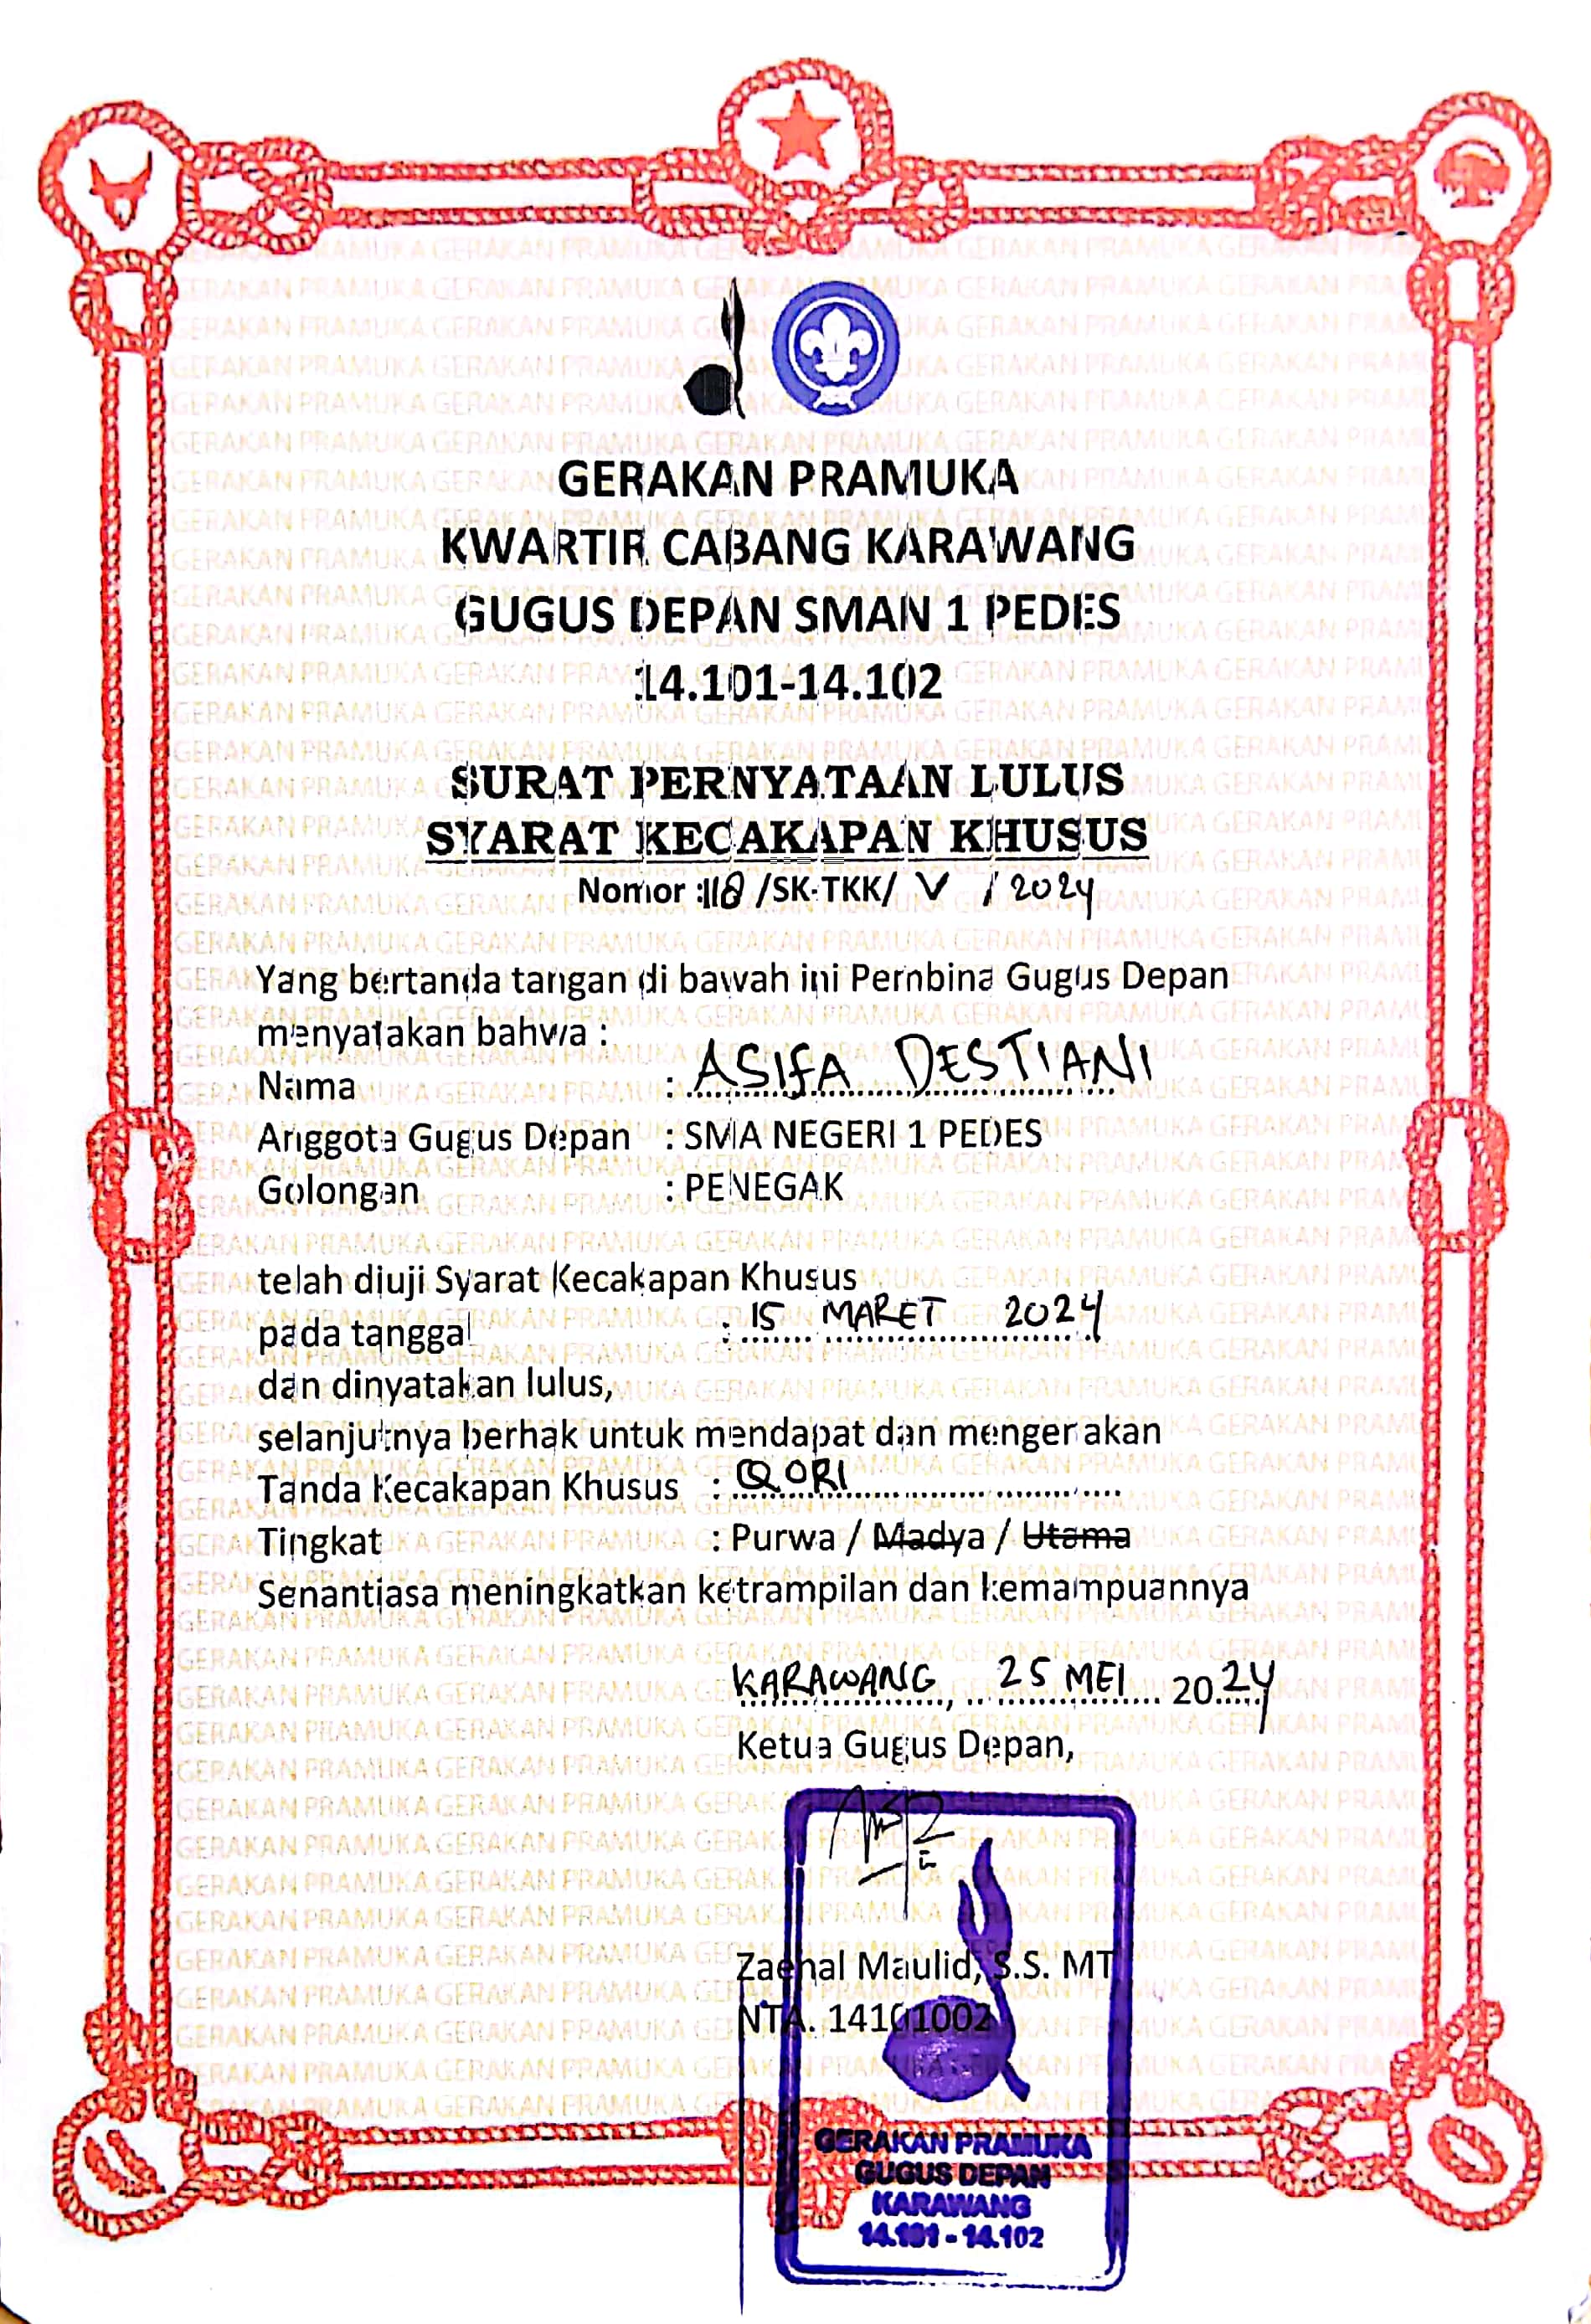 GERAKAN PRAMUKA
KWARTIR CABANG KARAWANG
GUGUS DEPAN SMAN 1 PEDES
14.101-14.102
SURAT PERNYATAAN LULUS
SYARAT KECAKAPAN KHUSUS
Nomor :118 /SK-TKK/ V / 2024
Yang bertanda tangan di bawah ini Pembina Gugus Depan
menyatakan bahwa :
Nama : ASIFA DESTIANI
Anggota Gugus Depan : SMA NEGERI 1 PEDES
Golongan : PENEGAK
telah diuji Syarat Kecakapan Khusus
pada tanggal : 15 MARET 2024
dan dinyatakan lulus,
selanjutnya berhak untuk mendapat dan mengenakan
Tanda Kecakapan Khusus : QORI
Tingkat : Purwa / Madya / Utama
Senantiasa meningkatkan ketrampilan dan kemampuannya
KARAWANG, 25 MEI 2024
Ketua Gugus Depan,
Zaenal Maulid, S.S. MT
NTA. 14101002
GERAKAN PRAMUKA
GUGUS DEPAN
KARAWANG
14.101 - 14.102